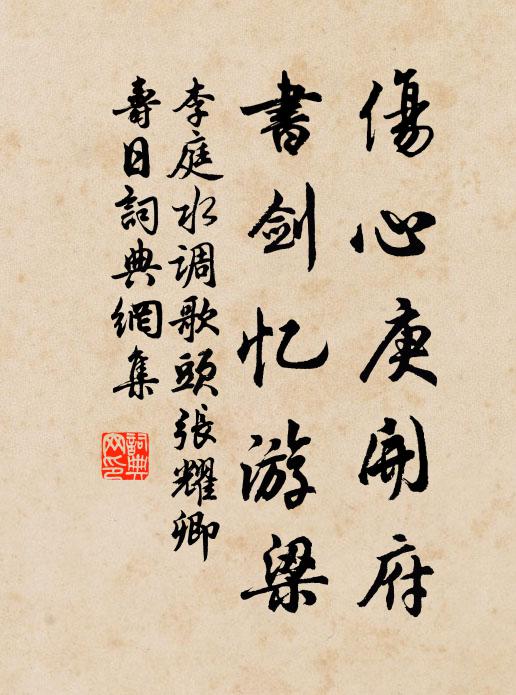 傷心庾開府
書劍忆游梁
李庭水调歌頭張耀卿
壽日詞典網集
詞典网印